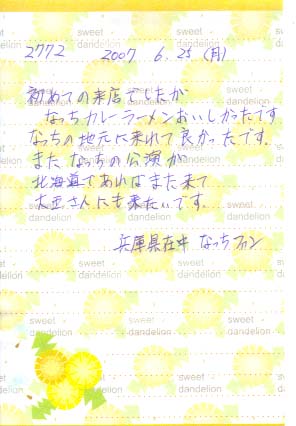 sweet dandelion
2772 2007 6. 25 (月)
初めての来店でしたが
なっちカレーラーメンおいしかったです
なっちの地元に来れて良かったです。
また なっちの公演が
北海道であればまた来て
大王さんにも来たいです。
兵庫県在中 なっちファン
sweet dandelion
sweet dandelion
sweet dandelion